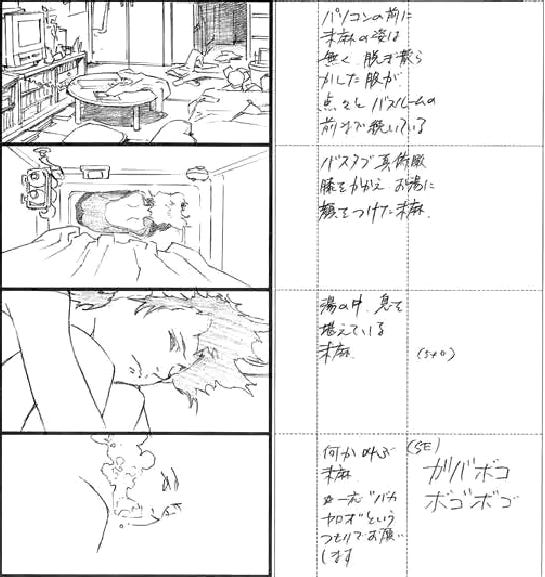 パソコンの前に
未麻の姿は
無く 脱ぎ散ら
かした服が
点々とバスルームの
前まで続いている
バスタブ 真俯瞰
膝をかかえ お湯に
顔をつけた未麻
湯の中、息を
堪えている
未麻
(5+0)
何か叫ぶ
未麻
※一応"バカ
ヤロオ"という
つもりでお願い
します
(SE)
ガバボコ
ボゴボゴ